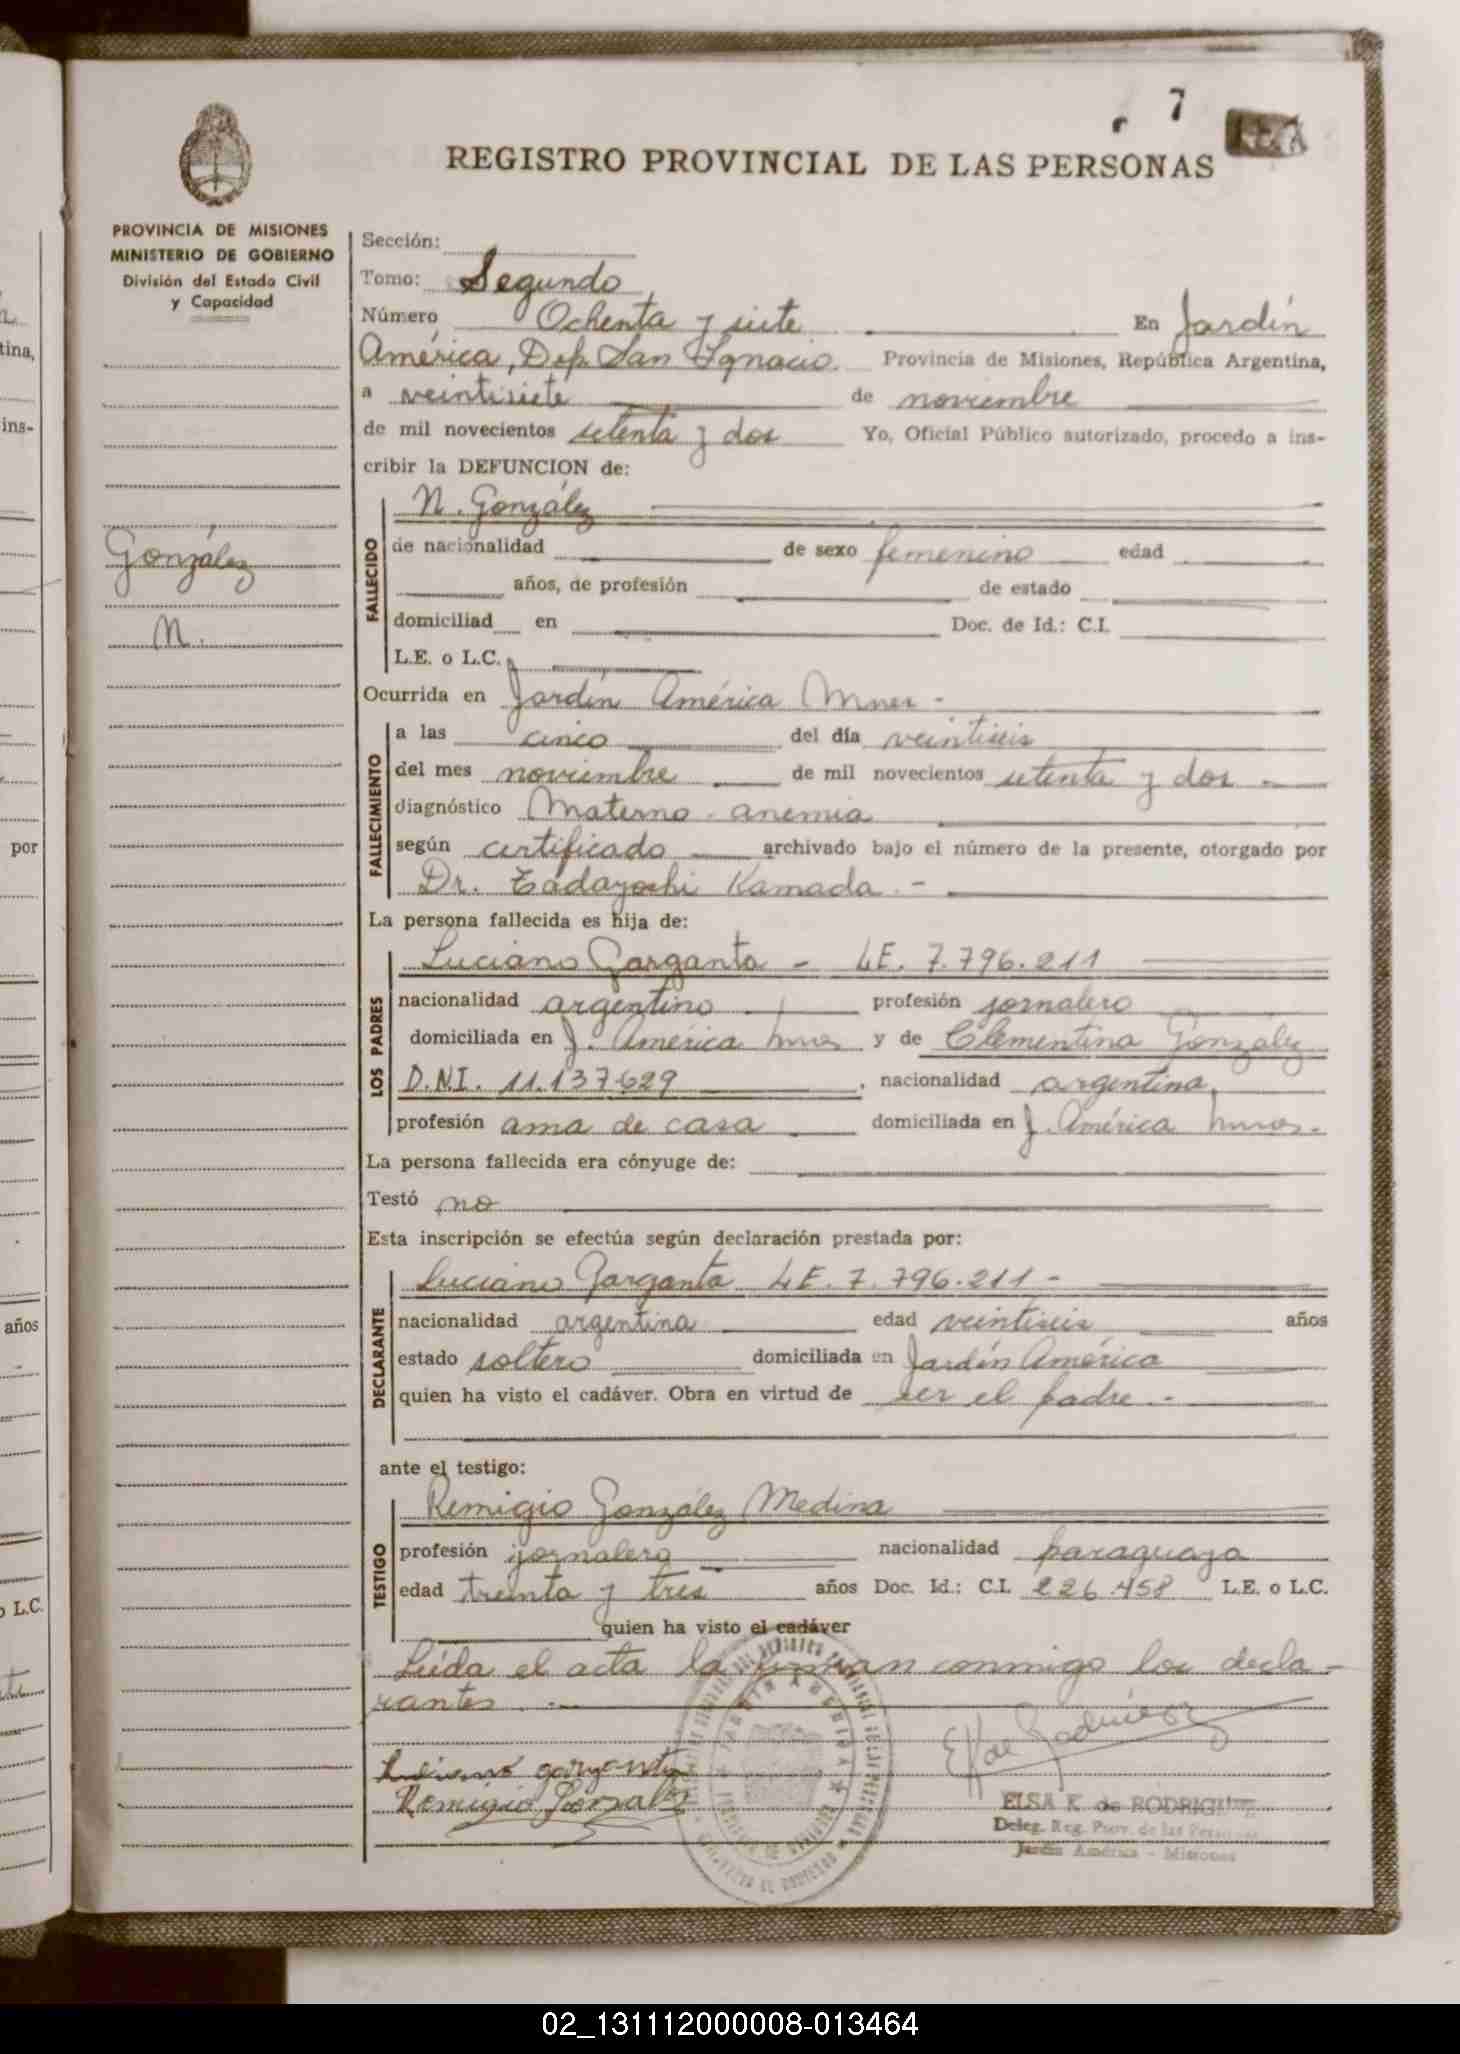 7
REGISTRO PROVINCIAL DE LAS PERSONAS
PROVINCIA DE MISIONES
MINISTERIO DE GOBIERNO
División del Estado Civil
y Capacidad
González
N.
Sección:
Tomo: Segundo
Número Ochenta y siete En Jardín
América, Dep. San Ignacio. Provincia de Misiones, República Argentina,
a veintisiete de noviembre
de mil novecientos setenta y dos Yo, Oficial Público autorizado, procedo a ins-
cribir la DEFUNCION de:
FALLECIDO
N. González
de nacionalidad de sexo femenino edad
años, de profesión de estado
domiciliad en Doc. de Id.: C.I.
L.E. o L.C.
Ocurrida en Jardín América Mnes -
FALLECIMIENTO
a las cinco del día veintiseis
del mes noviembre de mil novecientos setenta y dos -
diagnóstico Materno - anemia
según certificado archivado bajo el número de la presente, otorgado por
Dr. Tadayoshi Kamada. -
La persona fallecida es hija de:
LOS PADRES
Luciano Garganta - LE. 7.796.211
nacionalidad argentino profesión jornalero
domiciliada en J. América Mnes y de Clementina González
D.N.I. 11.137.629, nacionalidad argentina,
profesión ama de casa domiciliada en J. América Mnes.
La persona fallecida era cónyuge de:
Testó no
Esta inscripción se efectúa según declaración prestada por:
DECLARANTE
Luciano Garganta LE. 7.796.211 -
nacionalidad argentina edad veintiseis años
estado soltero domiciliada en Jardín América
quien ha visto el cadáver. Obra en virtud de ser el padre. -
ante el testigo:
TESTIGO
Remigio González Medina
profesión jornalero nacionalidad paraguaya
edad treinta y tres años Doc. Id.: C.I. 226.458 L.E. o L.C.
quien ha visto el cadáver
Leída el acta la firman conmigo los decla-
rantes. -
Luciano garganta
Remigio Gonzalez
E K de Rodriguez
ELSA K. de RODRIGUEZ
Deleg. Reg. Prov. de las Personas
Jardín América - Misiones
tina,
ins-
por
años
o L.C.
02_131112000008-013464